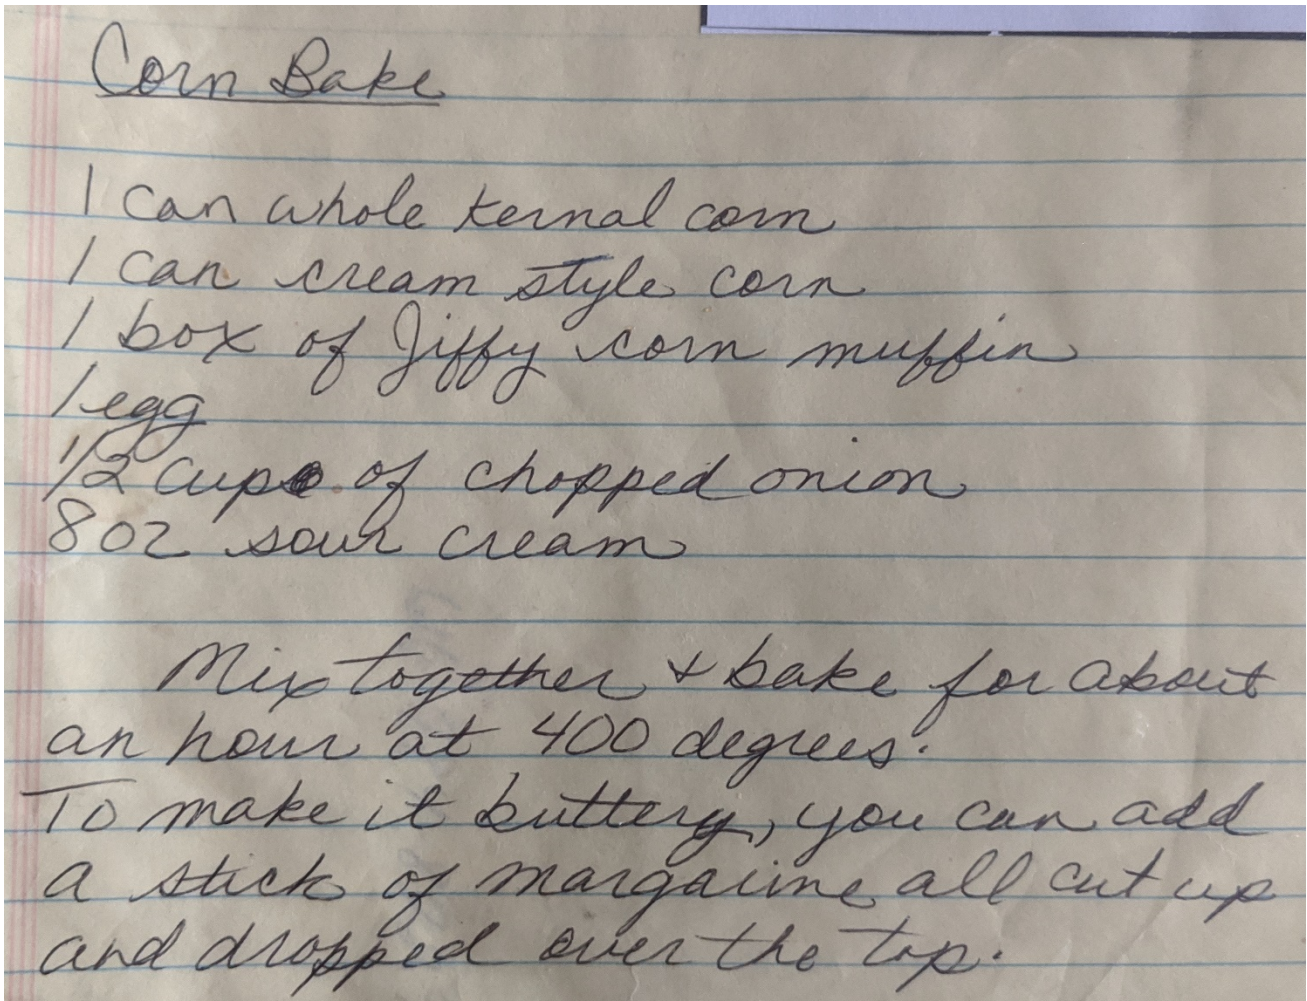 Corn Bake
1 can whole kernal corn
1 can cream style corn
1 box of Jiffy corn muffin
1 egg
1/2 cup of chopped onion
8 oz sour cream
Mix together & bake for about
an hour at 400 degrees.
To make it buttery, you can add
a stick of margarine all cut up
and dropped over the top.